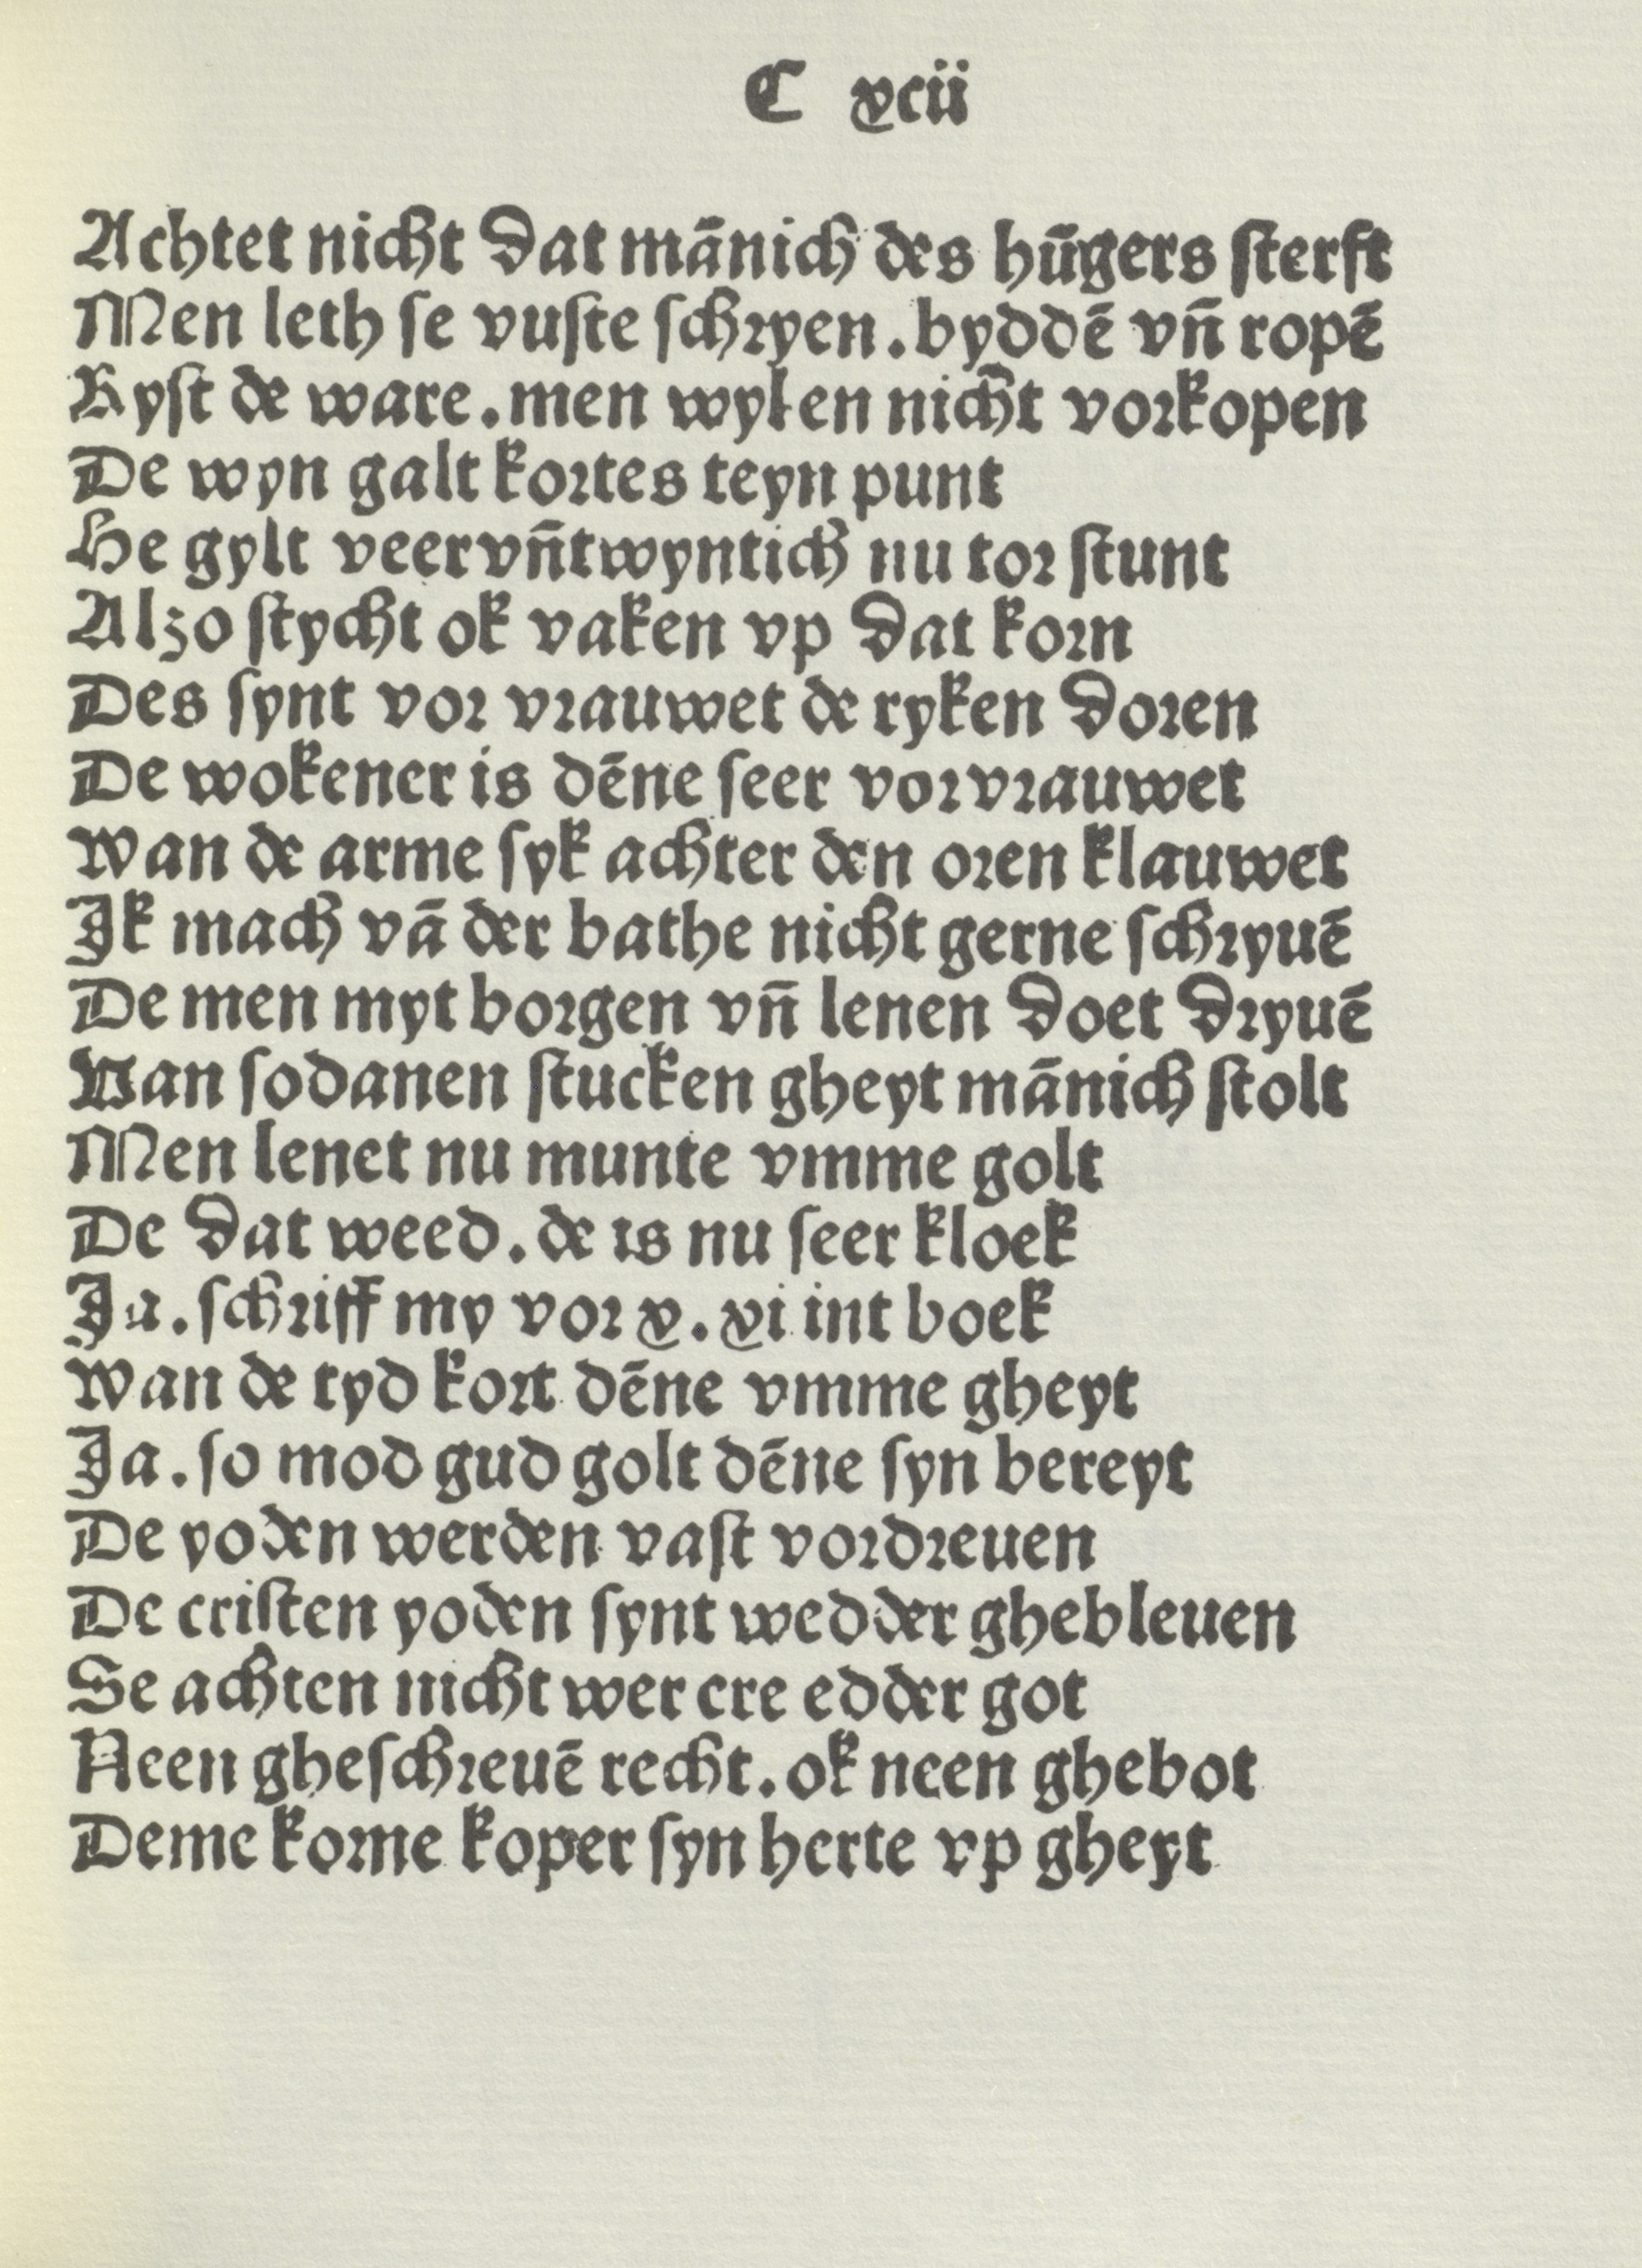 C xcii
Achtet nicht dat mānich des hūgers sterft
Men leth se vuste schryen. byddē vn̄ ropē
Ryst de ware. men wylen nicht vorkopen
De wyn galt kortes teyn punt
He gylt veervn̄twyntich nu tor stunt
Alzo stycht ok vaken vp dat korn
Des synt vor vrauwet de ryken doren
De wokener is dēne seer vorvrauwet
Wan de arme syk achter den oren klauwet
Ik mach vā der bathe nicht gerne schryuē
De men myt borgen vn̄ lenen doet dryuē
Van sodanen stucken gheyt mānich stolt
Men lenet nu munte vmme golt
De dat weed. de is nu seer kloek
Ja. schriff my vor x. xi int boek
Wan de tyd kort dēne vmme gheyt
Ja. so mod gud golt dēne syn bereyt
De yoden werden vast vordreuen
De cristen yoden synt wedder ghebleuen
Se achten nicht wer ere edder got
Neen gheschreuē recht. ok neen ghebot
Deme korne koper syn herte vp gheyt